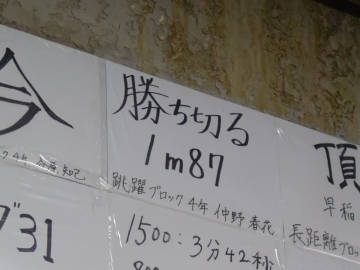 今
ック4年
勝ち切る
1m87
跳躍ブロック 4年 仲野 春花
頂
早稲
長距離ブロッ
31
1500:3分42秒